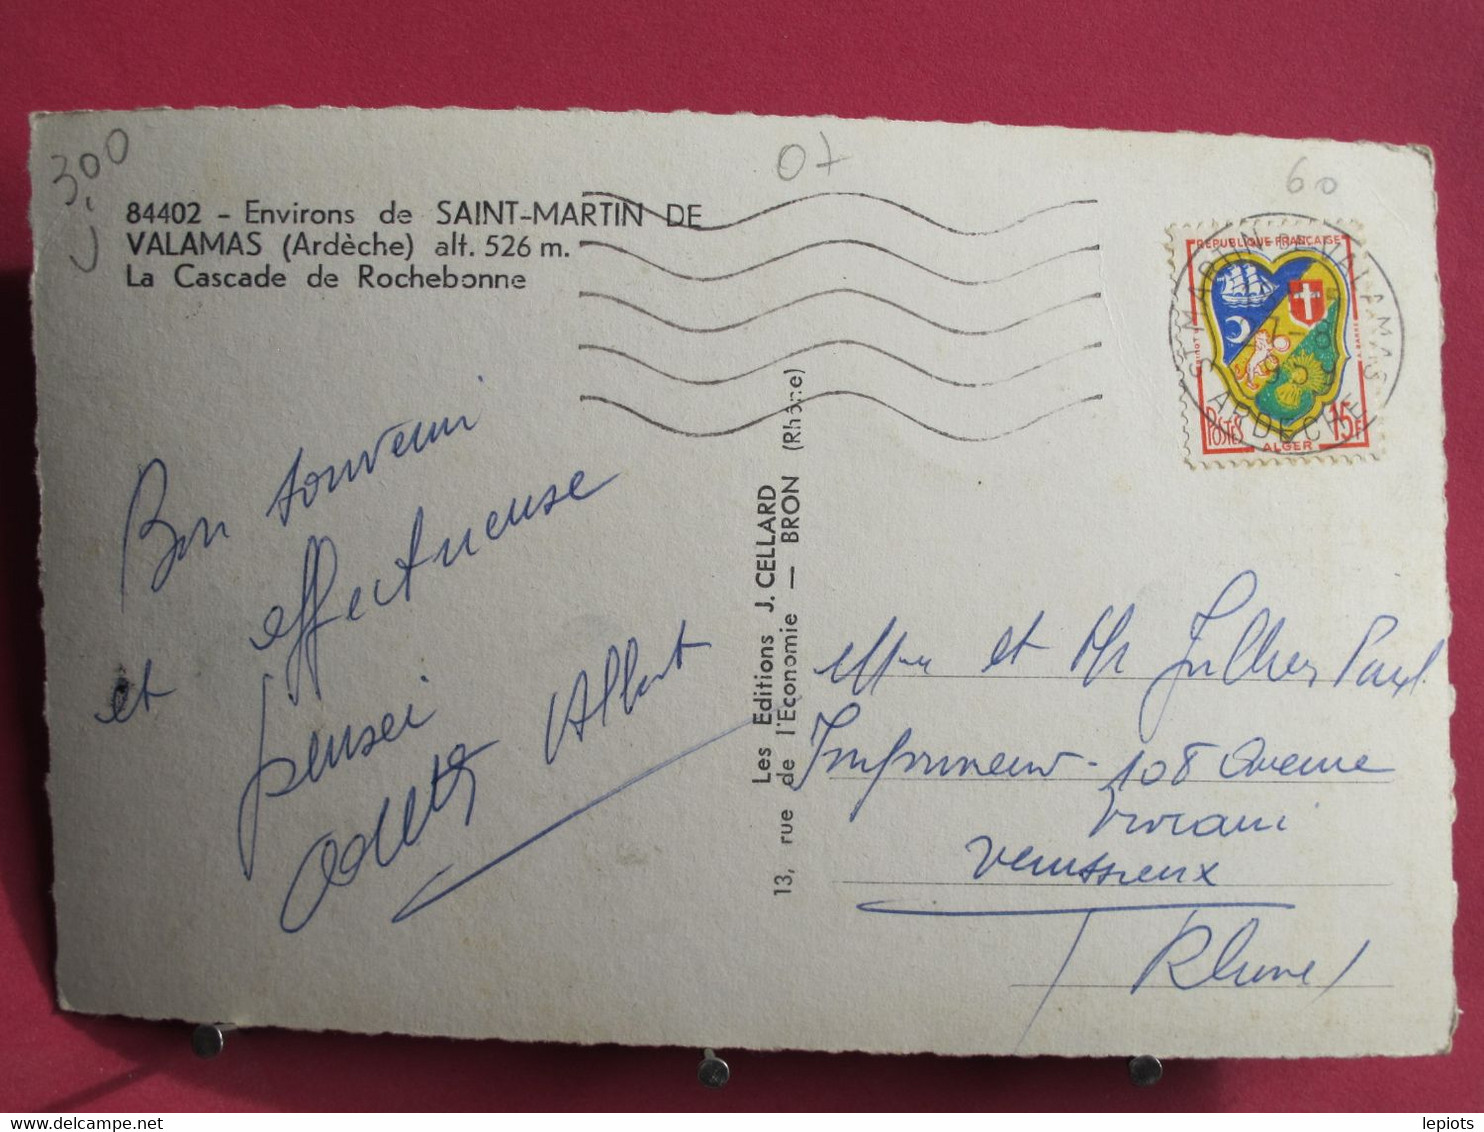 3,00
07
60
84402 - Environs de SAINT-MARTIN DE
VALAMAS (Ardèche) alt. 526 m.
La Cascade de Rochebonne
REPUBLIQUE FRANÇAISE
POSTES
ALGER
15F
ST MARTIN DE VALAMAS
ARDECHE
Bon souvenir
et effectueuse
pensei
Odette Albert
Les Editions J. CELLARD
13, rue de l'Economie — BRON (Rhône)
et Mr Paul
Imprimeur - 108 Avenue
Viviani
Venissieux
(Rhone)
delcampe.net
lepiots